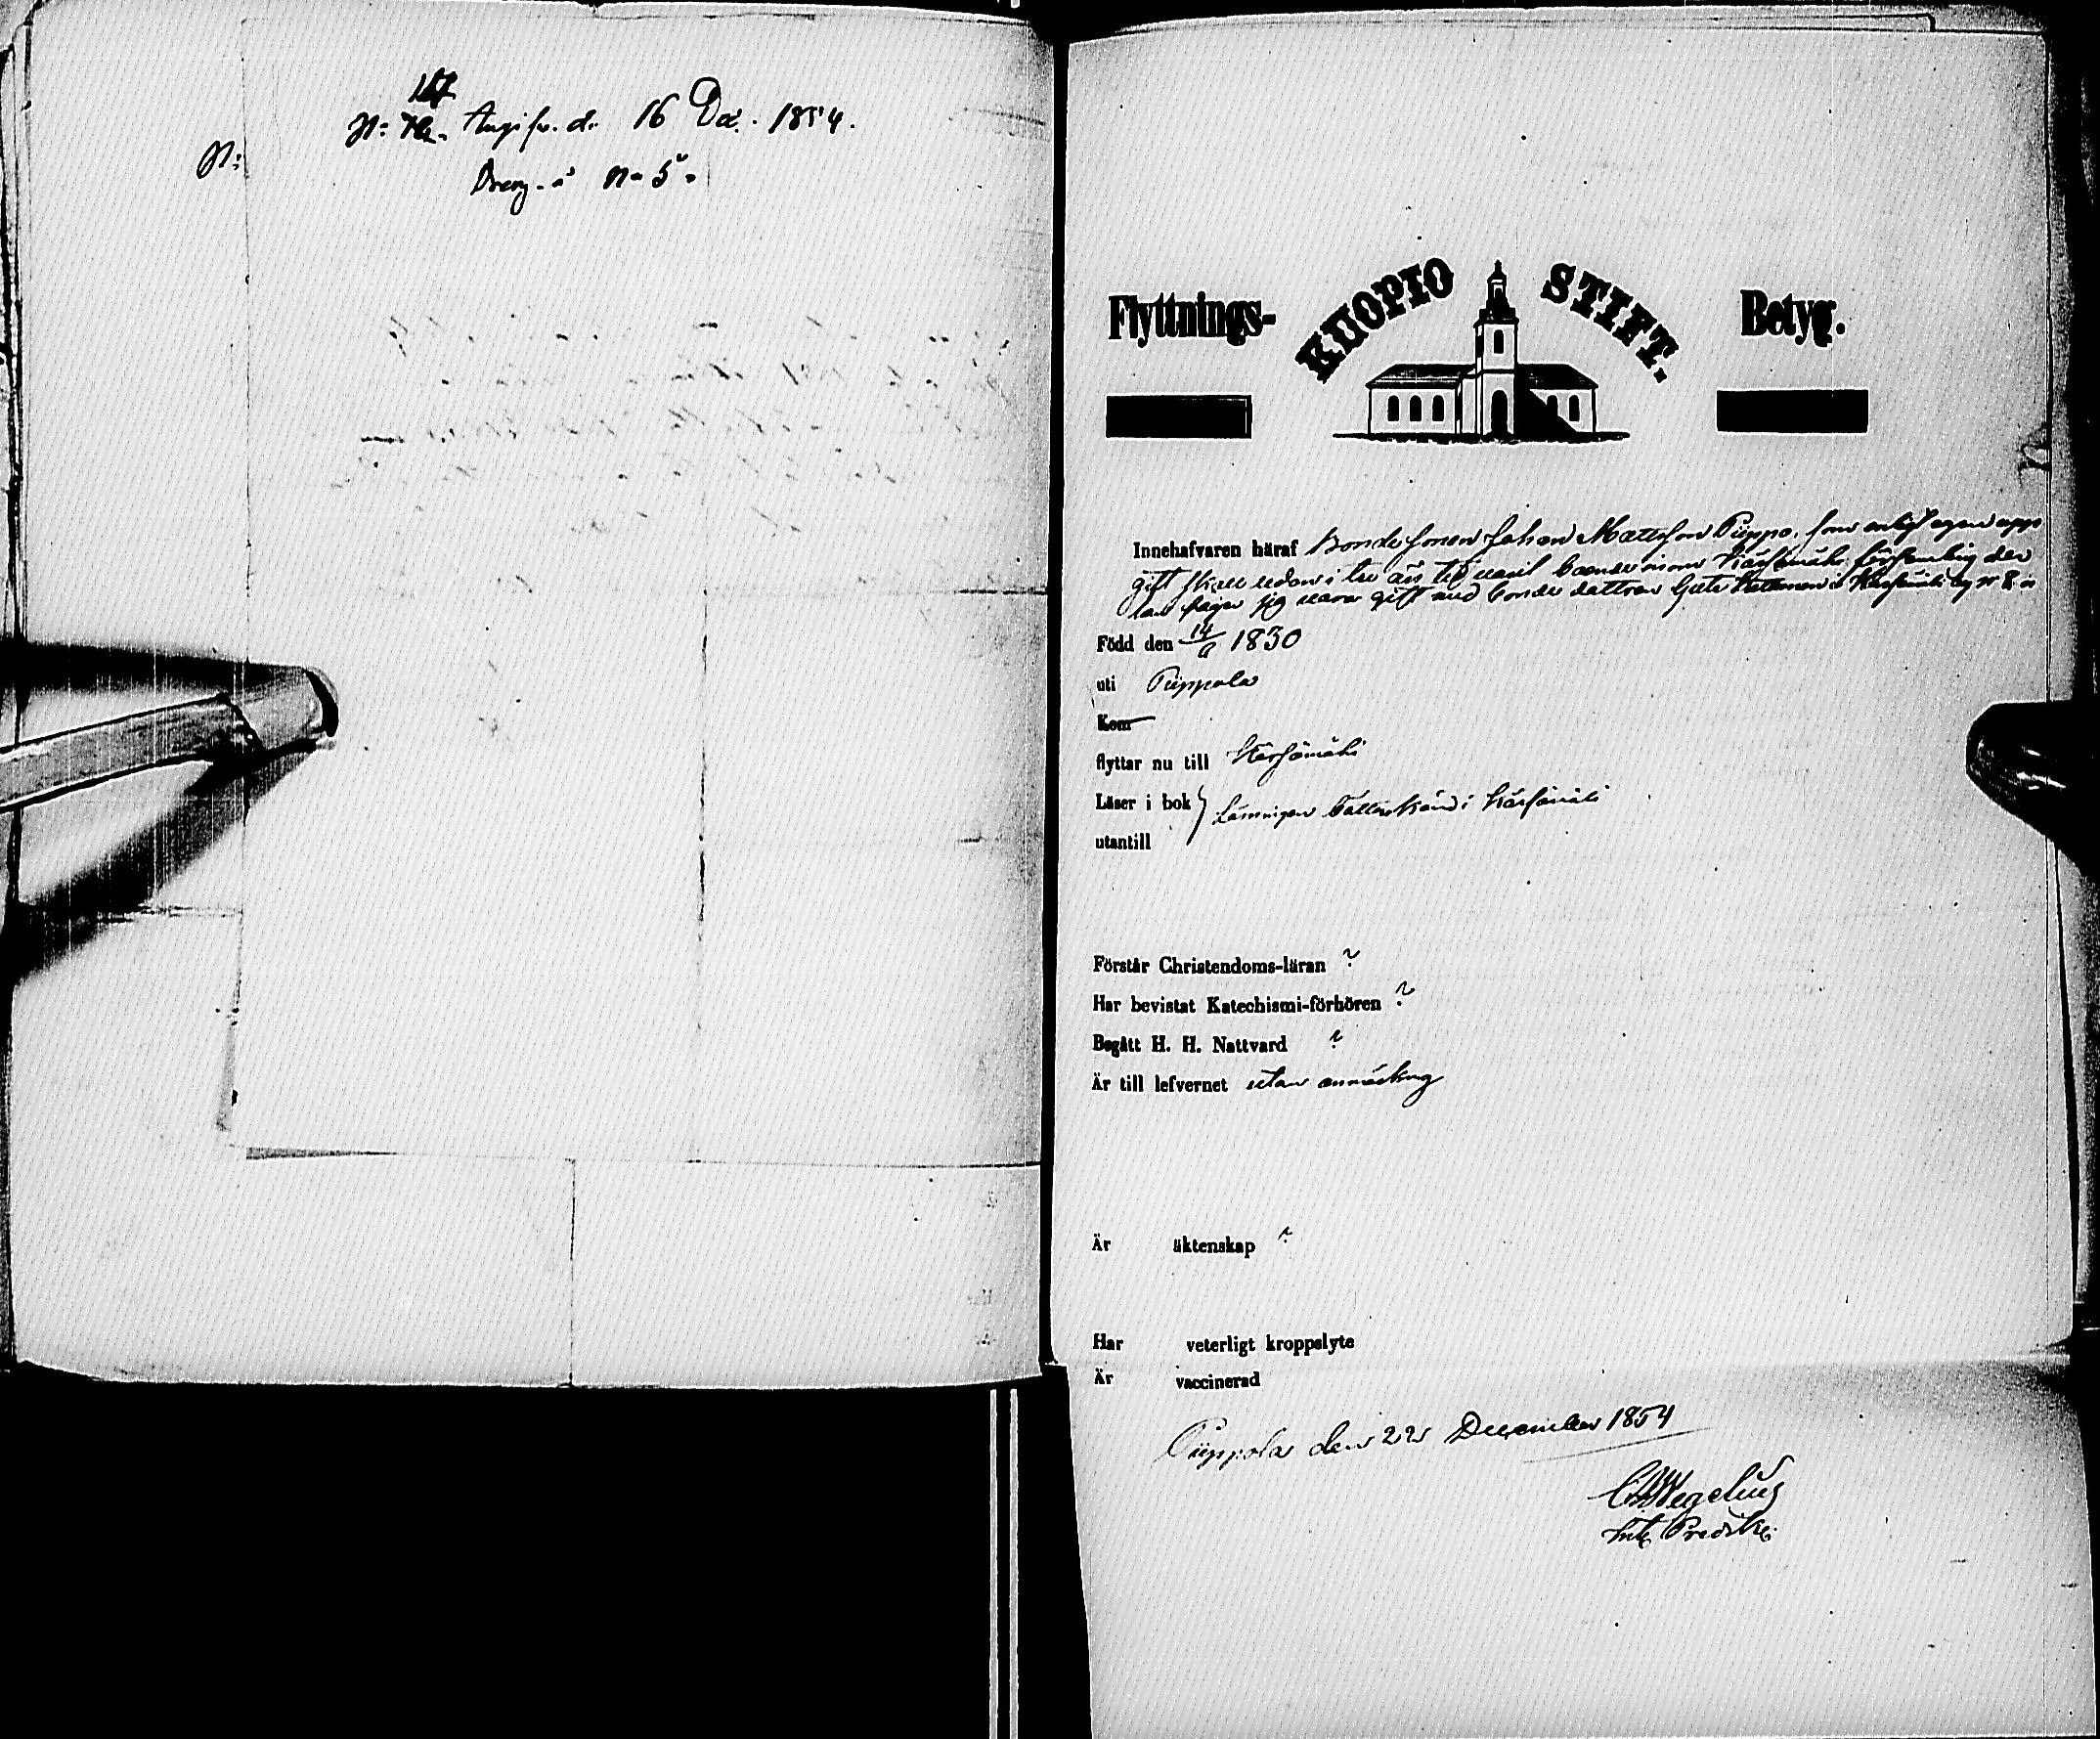 127
N: 72. Angifv. d. 16 Dec. 1854.
N:
Dreng å N. 5.
Flyttnings- KUOPIO STIFT. Betyg.
Innehafvaren häraf Bondesonen Johan Mattsson Püppo, som enligt egen upp
gift skall redan i tre års tid varit boende inom Kärsämäki församling der
han säger sig vara gift med bonde dottren Greta i Kärsämäki by N 8
Född den 14/6 1830
uti Püppola
Kom
flyttar nu till Kärsämäki
Läser i bok } Lämnigen bättre känd i Kärsämäki
utantill
Förstår Christendoms-läran ?
Har bevistat Katechismi-förhören ?
Begått H. H. Nattvard ?
Är till lefvernet utan anmärkning
Är äktenskap ?
Har veterligt kroppslyte
Är vaccinerad
Püppola den 22 December 1854
Wegelius
Predik.